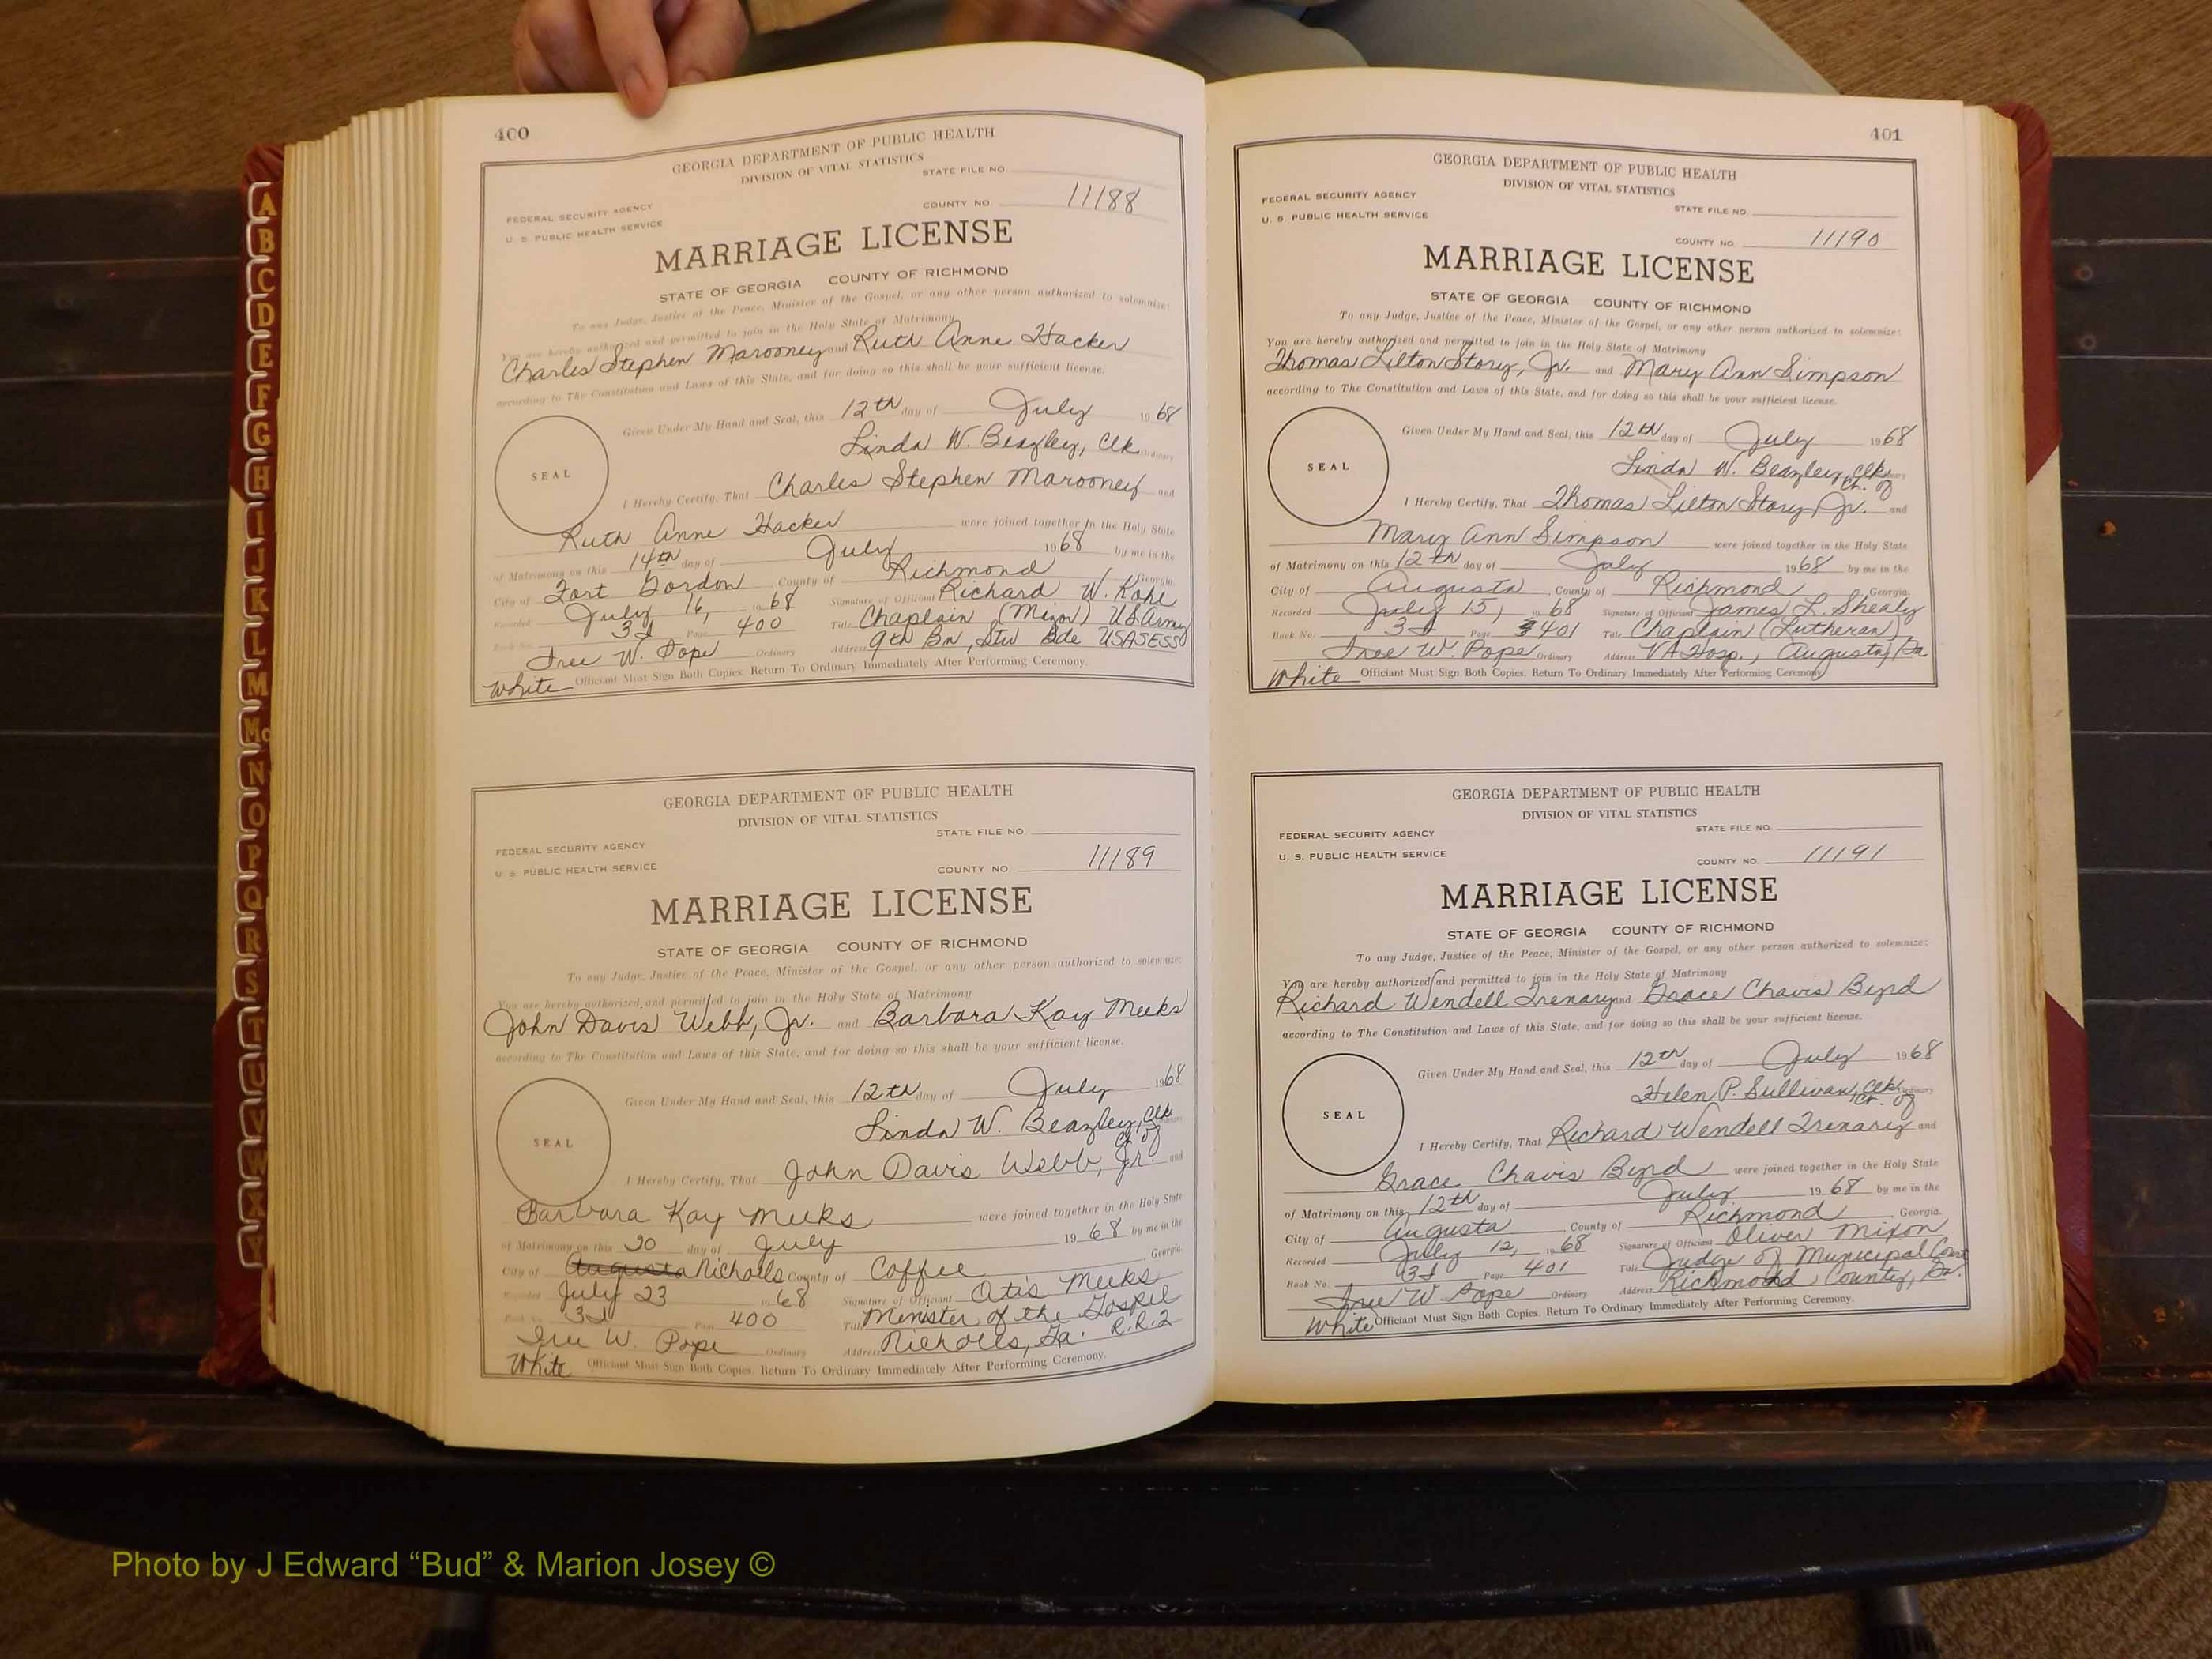 A
B
C
D
E
F
G
H
I
J
K
L
M
Mc
N
O
P
Q
R
S
T
U
V
W
X
Y
400
GEORGIA DEPARTMENT OF PUBLIC HEALTH
DIVISION OF VITAL STATISTICS
STATE FILE NO.
FEDERAL SECURITY AGENCY
U. S. PUBLIC HEALTH SERVICE
COUNTY NO. 11188
MARRIAGE LICENSE
STATE OF GEORGIA COUNTY OF RICHMOND
To any Judge, Justice of the Peace, Minister of the Gospel, or any other person authorized to solemnize:
You are hereby authorized and permitted to join in the Holy State of Matrimony
Charles Stephen Marooney and Ruth Anne Hacker
according to The Constitution and Laws of this State, and for doing so this shall be your sufficient license.
Given Under My Hand and Seal, this 12th day of July 1968
Linda W. Beazley, Clk Ordinary
SEAL
I Hereby Certify, That Charles Stephen Marooney and
Ruth Anne Hacker were joined together in the Holy State
of Matrimony on this 14th day of July 1968 by me in the
City of Fort Gordon County of Richmond Georgia
Recorded July 16, 1968 Signature of Officiant Richard W. Kohl
Book No. 3J Page 400 Title Chaplain (Major) US Army
Address 9th Bn, Stu Bde USASESS
W. Pope Ordinary
White Officiant Must Sign Both Copies. Return To Ordinary Immediately After Performing Ceremony.
GEORGIA DEPARTMENT OF PUBLIC HEALTH
DIVISION OF VITAL STATISTICS
STATE FILE NO.
FEDERAL SECURITY AGENCY
U. S. PUBLIC HEALTH SERVICE
COUNTY NO. 11189
MARRIAGE LICENSE
STATE OF GEORGIA COUNTY OF RICHMOND
To any Judge, Justice of the Peace, Minister of the Gospel, or any other person authorized to solemnize:
You are hereby authorized and permitted to join in the Holy State of Matrimony
John Davis Webb, Jr. and Barbara Kay Meeks
according to The Constitution and Laws of this State, and for doing so this shall be your sufficient license.
Given Under My Hand and Seal, this 12th day of July 1968
Linda W. Beazley, Clk
Ct. of
SEAL
I Hereby Certify, That John Davis Webb, Jr. and
Barbara Kay Meeks were joined together in the Holy State
of Matrimony on this 20 day of July 1968 by me in the
City of Augusta Nicholls County of Coffee Georgia
Recorded July 23 1968 Signature of Officiant Otis Meeks
Book No. 3J Page 400 Title Minister of the Gospel
W. Pope Ordinary Address Nicholls, Ga. R.R.2
White Officiant Must Sign Both Copies. Return To Ordinary Immediately After Performing Ceremony.
401
GEORGIA DEPARTMENT OF PUBLIC HEALTH
DIVISION OF VITAL STATISTICS
FEDERAL SECURITY AGENCY
STATE FILE NO.
U. S. PUBLIC HEALTH SERVICE
COUNTY NO. 11190
MARRIAGE LICENSE
STATE OF GEORGIA COUNTY OF RICHMOND
To any Judge, Justice of the Peace, Minister of the Gospel, or any other person authorized to solemnize:
You are hereby authorized and permitted to join in the Holy State of Matrimony
Thomas Lilton Story, Jr. and Mary Ann Simpson
according to The Constitution and Laws of this State, and for doing so this shall be your sufficient license.
Given Under My Hand and Seal, this 12th day of July 1968
Linda W. Beazley, Clk.
Ct. of
SEAL
I Hereby Certify, That Thomas Lilton Story, Jr. and
Mary Ann Simpson were joined together in the Holy State
of Matrimony on this 12th day of July 1968 by me in the
City of Augusta, County of Richmond Georgia.
Recorded July 15, 1968 Signature of Officiant James L. Shealy
Book No. 3J Page 401 Title Chaplain (Lutheran)
W. Pope Ordinary Address VA Hosp., Augusta, Ga.
White Officiant Must Sign Both Copies. Return To Ordinary Immediately After Performing Ceremony.
GEORGIA DEPARTMENT OF PUBLIC HEALTH
DIVISION OF VITAL STATISTICS
STATE FILE NO.
FEDERAL SECURITY AGENCY
U. S. PUBLIC HEALTH SERVICE
COUNTY NO. 11191
MARRIAGE LICENSE
STATE OF GEORGIA COUNTY OF RICHMOND
To any Judge, Justice of the Peace, Minister of the Gospel, or any other person authorized to solemnize:
You are hereby authorized and permitted to join in the Holy State of Matrimony
Richard Wendell Trenary and Grace Chavis Byrd
according to The Constitution and Laws of this State, and for doing so this shall be your sufficient license.
Given Under My Hand and Seal, this 12th day of July 1968
Helen P. Sullivan, Clk. Ordinary
Ct. of
SEAL
I Hereby Certify, That Richard Wendell Trenary and
Grace Chavis Byrd were joined together in the Holy State
of Matrimony on this 12th day of July 1968 by me in the
City of Augusta, County of Richmond Georgia.
Recorded July 12, 1968 Signature of Officiant Oliver Mixon
Book No. 3J Page 401 Title Judge of Municipal Court
W Pope Ordinary Address Richmond County, Ga.
White Officiant Must Sign Both Copies. Return To Ordinary Immediately After Performing Ceremony.
Photo by J Edward “Bud” & Marion Josey ©